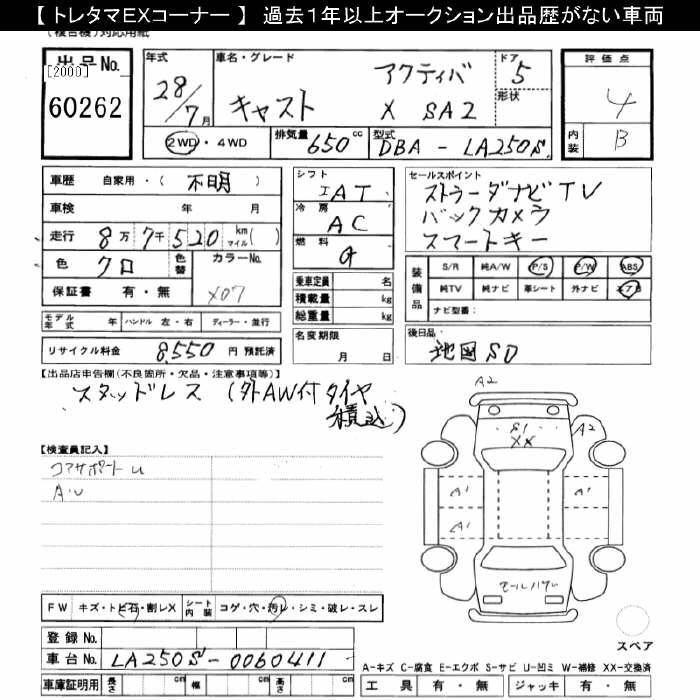 【 トレタマEXコーナー 】 過去1年以上オークション出品歴がない車両
(複合機)対応用紙
出品No.
[2000]
60262
年式
28/7月
車名・グレード
キャスト アクティバ
X SA2
ドア
5
形状
評価点
4
内装
B
2WD・4WD
排気量 650 cc
型式 DBA - LA250S
車歴 自家用・( 不明 )
車検 年 月
走行 8万 7千 520 km マイル( )
色 クロ
色替
カラーNo.
X07
保証書 有・無
モデル年式 年 ハンドル 左・右 ディーラー・並行
リサイクル料金 8,550 円 預託済
シフト
IAT
冷房
AC
燃料
G
乗車定員 名
積載量 kg
総重量 kg
名変期限
月 日
セールスポイント
ストラーダナビTV
バックカメラ
スマートキー
装備品
S/R 純A/W P/S P/W ABS
純TV 純ナビ 革シート 外ナビ エアB
ナビ型番:
後日品:
地図SD
【出品店申告欄(不良箇所・欠品・注意事項等)】
スタッドレス (外AW付タイヤ
積込)
【検査員記入】
コアサポートU
A・U
FW キズ・トビ石・割レX シート内装 コゲ・穴・汚レ・シミ・破レ・スレ
登録 No.
車台 No. LA250S-0060411
車庫証明用 長さ cm 幅 cm 高さ cm
A2
S1
XX
A2
A1
A1
A1
スペア
A-キズ C-腐食 E-エクボ S-サビ U-凹ミ W-補修 XX-交換済
工具 有・無 ジャッキ 有・無